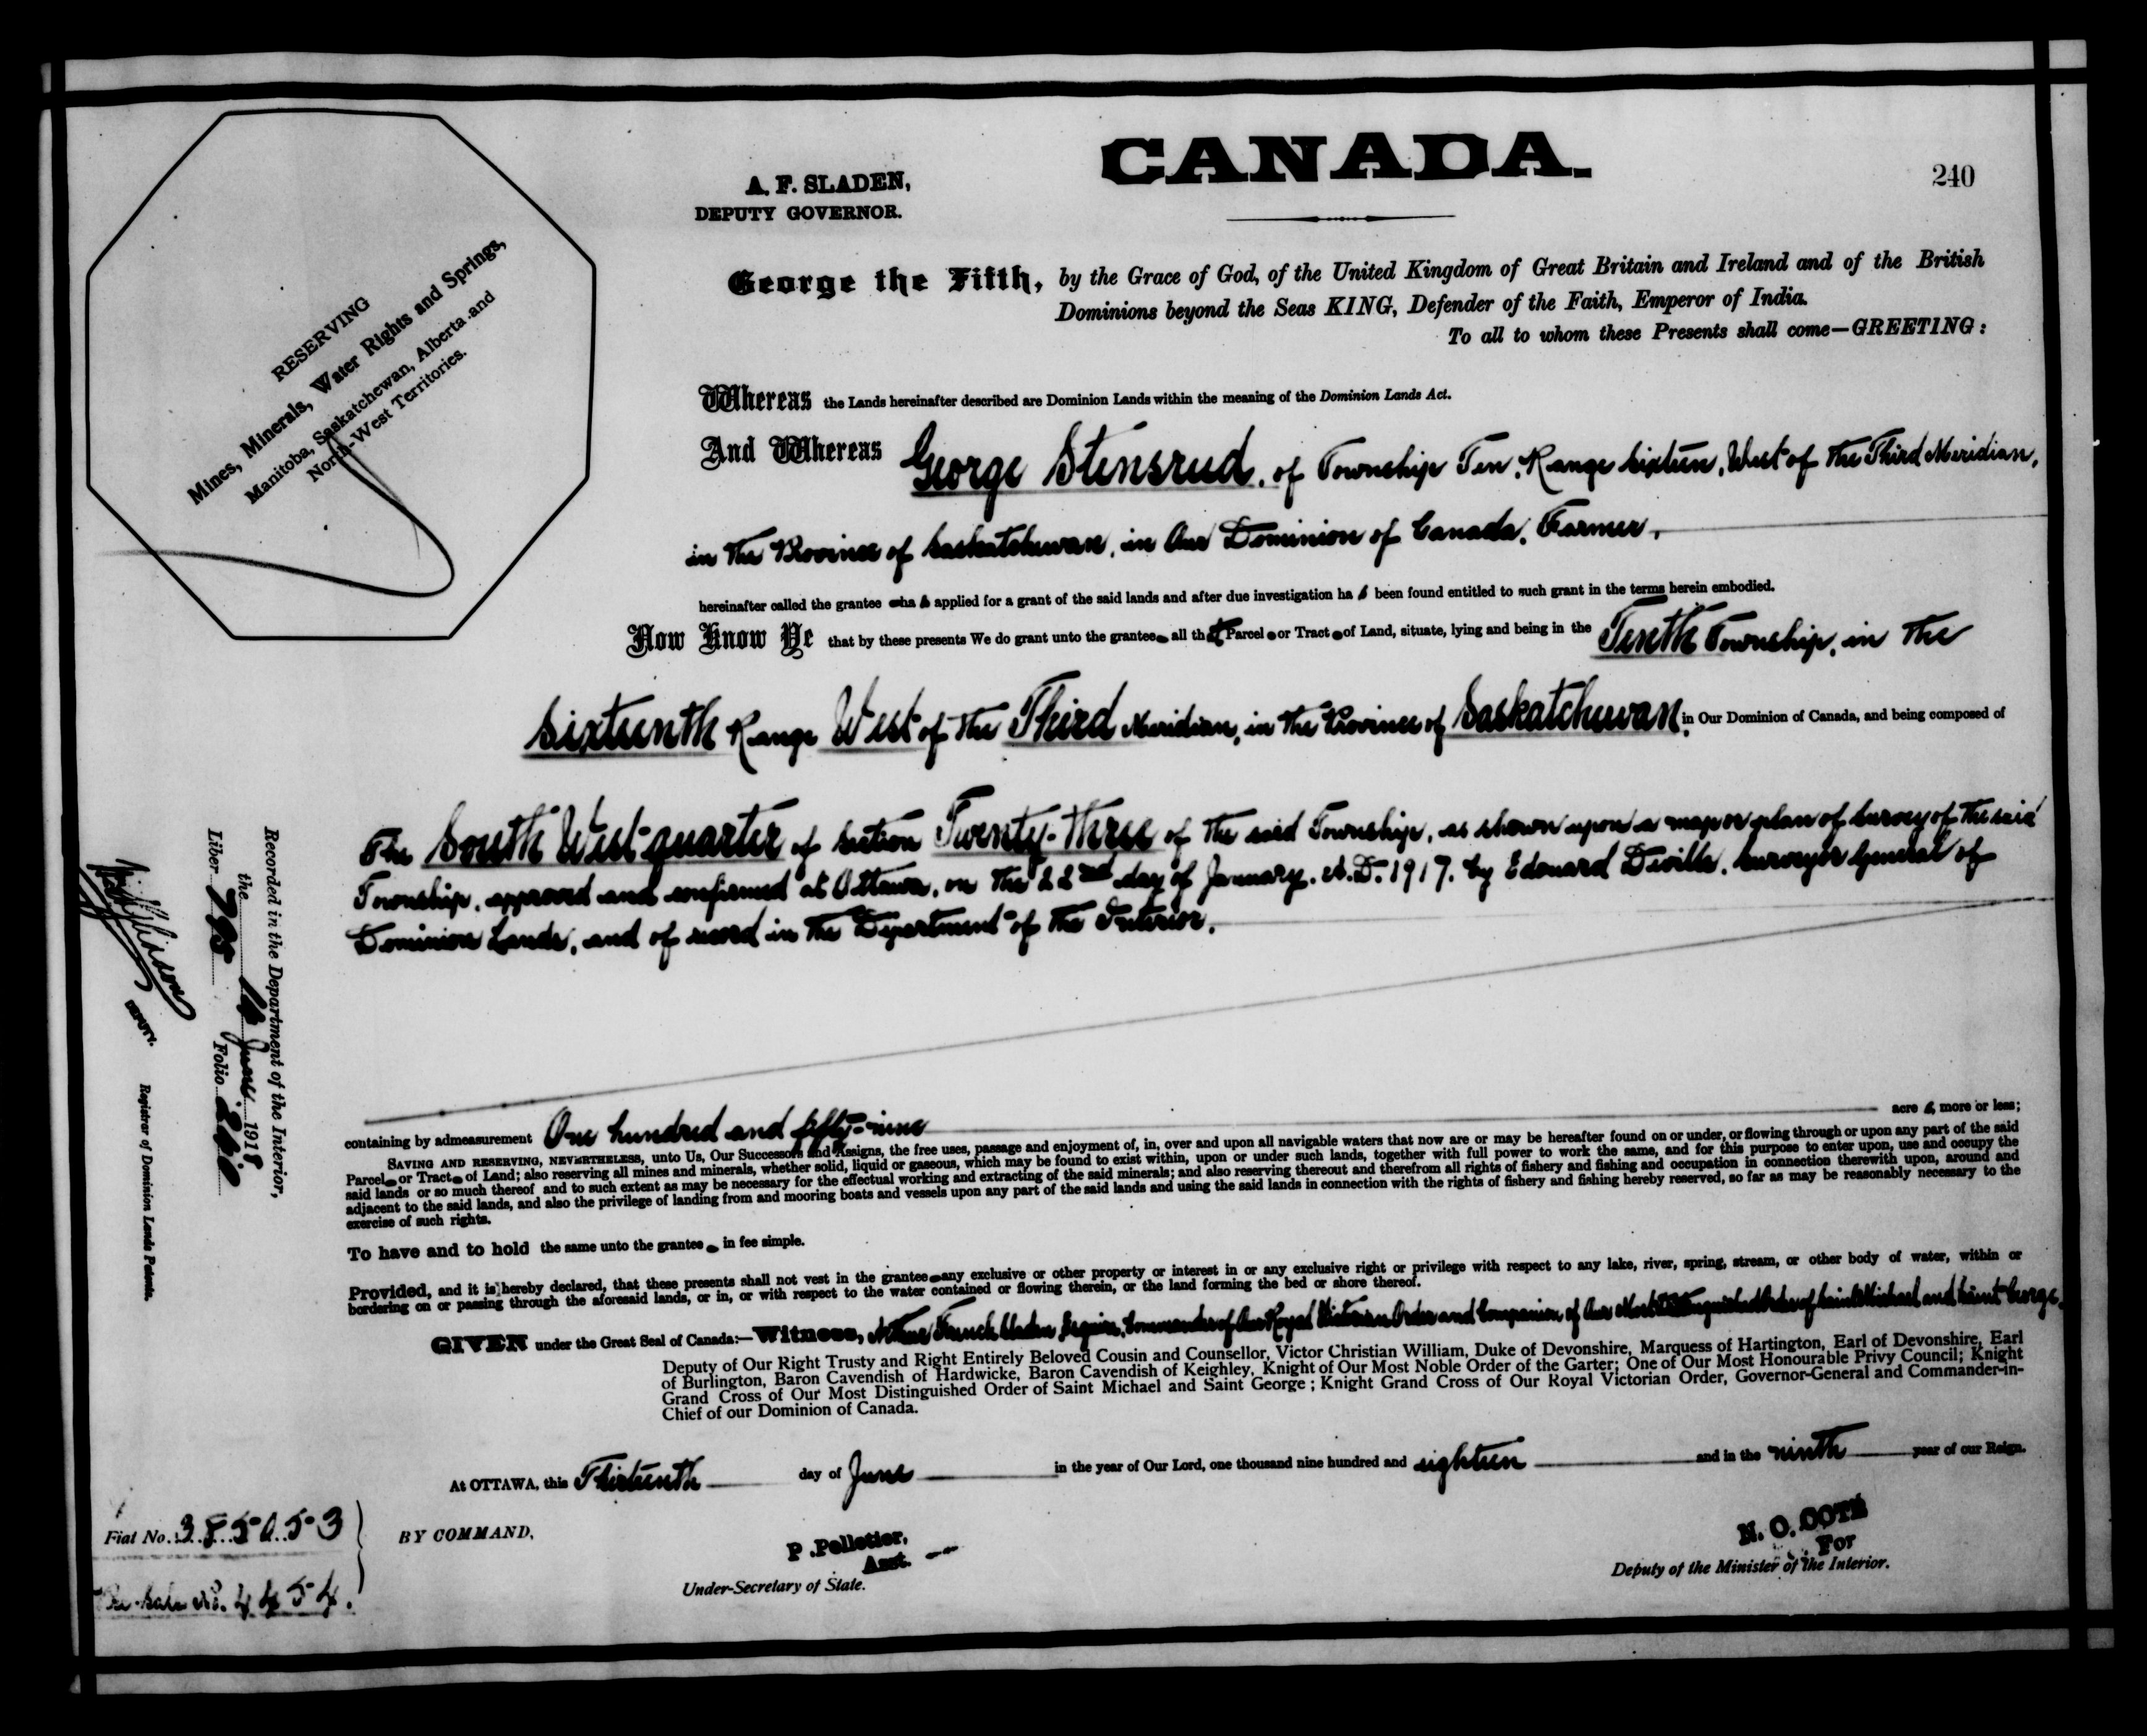 CANADA.
240
A. F. SLADEN,
DEPUTY GOVERNOR.
RESERVING
Mines, Minerals, Water Rights and Springs,
Manitoba, Saskatchewan, Alberta and
North-West Territories.
George the Fifth, by the Grace of God, of the United Kingdom of Great Britain and Ireland and of the British
Dominions beyond the Seas KING, Defender of the Faith, Emperor of India.
To all to whom these Presents shall come—GREETING:
Whereas the Lands hereinafter described are Dominion Lands within the meaning of the Dominion Lands Act.
And Whereas George Stensrud, of Township Ten, Range Sixteen, West of the Third Meridian,
in the Province of Saskatchewan, in Our Dominion of Canada, Farmer,
hereinafter called the grantee ha s applied for a grant of the said lands and after due investigation ha s been found entitled to such grant in the terms herein embodied.
Now Know Ye that by these presents We do grant unto the grantee all that Parcel or Tract of Land, situate, lying and being in the Tenth Township, in the
Sixteenth Range West of the Third Meridian, in the Province of Saskatchewan, in Our Dominion of Canada, and being composed of
The South West quarter of Section Twenty-three of the said Township, as shown upon a map or plan of survey of the said
Township, approved and confirmed at Ottawa, on the 22nd day of January, A.D. 1917, by Edouard Deville, Surveyor General of
Dominion Lands, and of record in the Department of the Interior,
containing by admeasurement One hundred and fifty-nine acre s, more or less;
SAVING AND RESERVING, NEVERTHELESS, unto Us, Our Successors and Assigns, the free uses, passage and enjoyment of, in, over and upon all navigable waters that now are or may be hereafter found on or under, or flowing through or upon any part of the said
Parcel or Tract of Land; also reserving all mines and minerals, whether solid, liquid or gaseous, which may be found to exist within, upon or under such lands, together with full power to work the same, and for this purpose to enter upon, use and occupy the
said lands or so much thereof and to such extent as may be necessary for the effectual working and extracting of the said minerals; and also reserving thereout and therefrom all rights of fishery and fishing and occupation in connection therewith upon, around and
adjacent to the said lands, and also the privilege of landing from and mooring boats and vessels upon any part of the said lands and using the said lands in connection with the rights of fishery and fishing hereby reserved, so far as may be reasonably necessary to the
exercise of such rights.
To have and to hold the same unto the grantee in fee simple.
Provided, and it is hereby declared, that these presents shall not vest in the grantee any exclusive or other property or interest in or any exclusive right or privilege with respect to any lake, river, spring, stream, or other body of water, within or
bordering on or passing through the aforesaid lands, or in, or with respect to the water contained or flowing therein, or the land forming the bed or shore thereof.
GIVEN under the Great Seal of Canada:—Witness, Arthur French Sladen Esquire, Commander of Our Royal Victorian Order and Companion of Our Most Distinguished Order of Saint Michael and Saint George,
Deputy of Our Right Trusty and Right Entirely Beloved Cousin and Counsellor, Victor Christian William, Duke of Devonshire, Marquess of Hartington, Earl of Devonshire, Earl
of Burlington, Baron Cavendish of Hardwicke, Baron Cavendish of Keighley, Knight of Our Most Noble Order of the Garter; One of Our Most Honourable Privy Council; Knight
Grand Cross of Our Most Distinguished Order of Saint Michael and Saint George; Knight Grand Cross of Our Royal Victorian Order, Governor-General and Commander-in-
Chief of our Dominion of Canada.
At OTTAWA, this Thirteenth day of June in the year of Our Lord, one thousand nine hundred and eighteen and in the ninth year of our Reign.
BY COMMAND,
P. Pelletier,
Asst.
Under-Secretary of State.
N. O. COTE
For
Deputy of the Minister of the Interior.
Fiat No. 385053
No. 4454.
Recorded in the Department of the Interior,
the 14 June 1918
Liber 795 Folio 240
DEPUTY.
Registrar of Dominion Lands Patents.